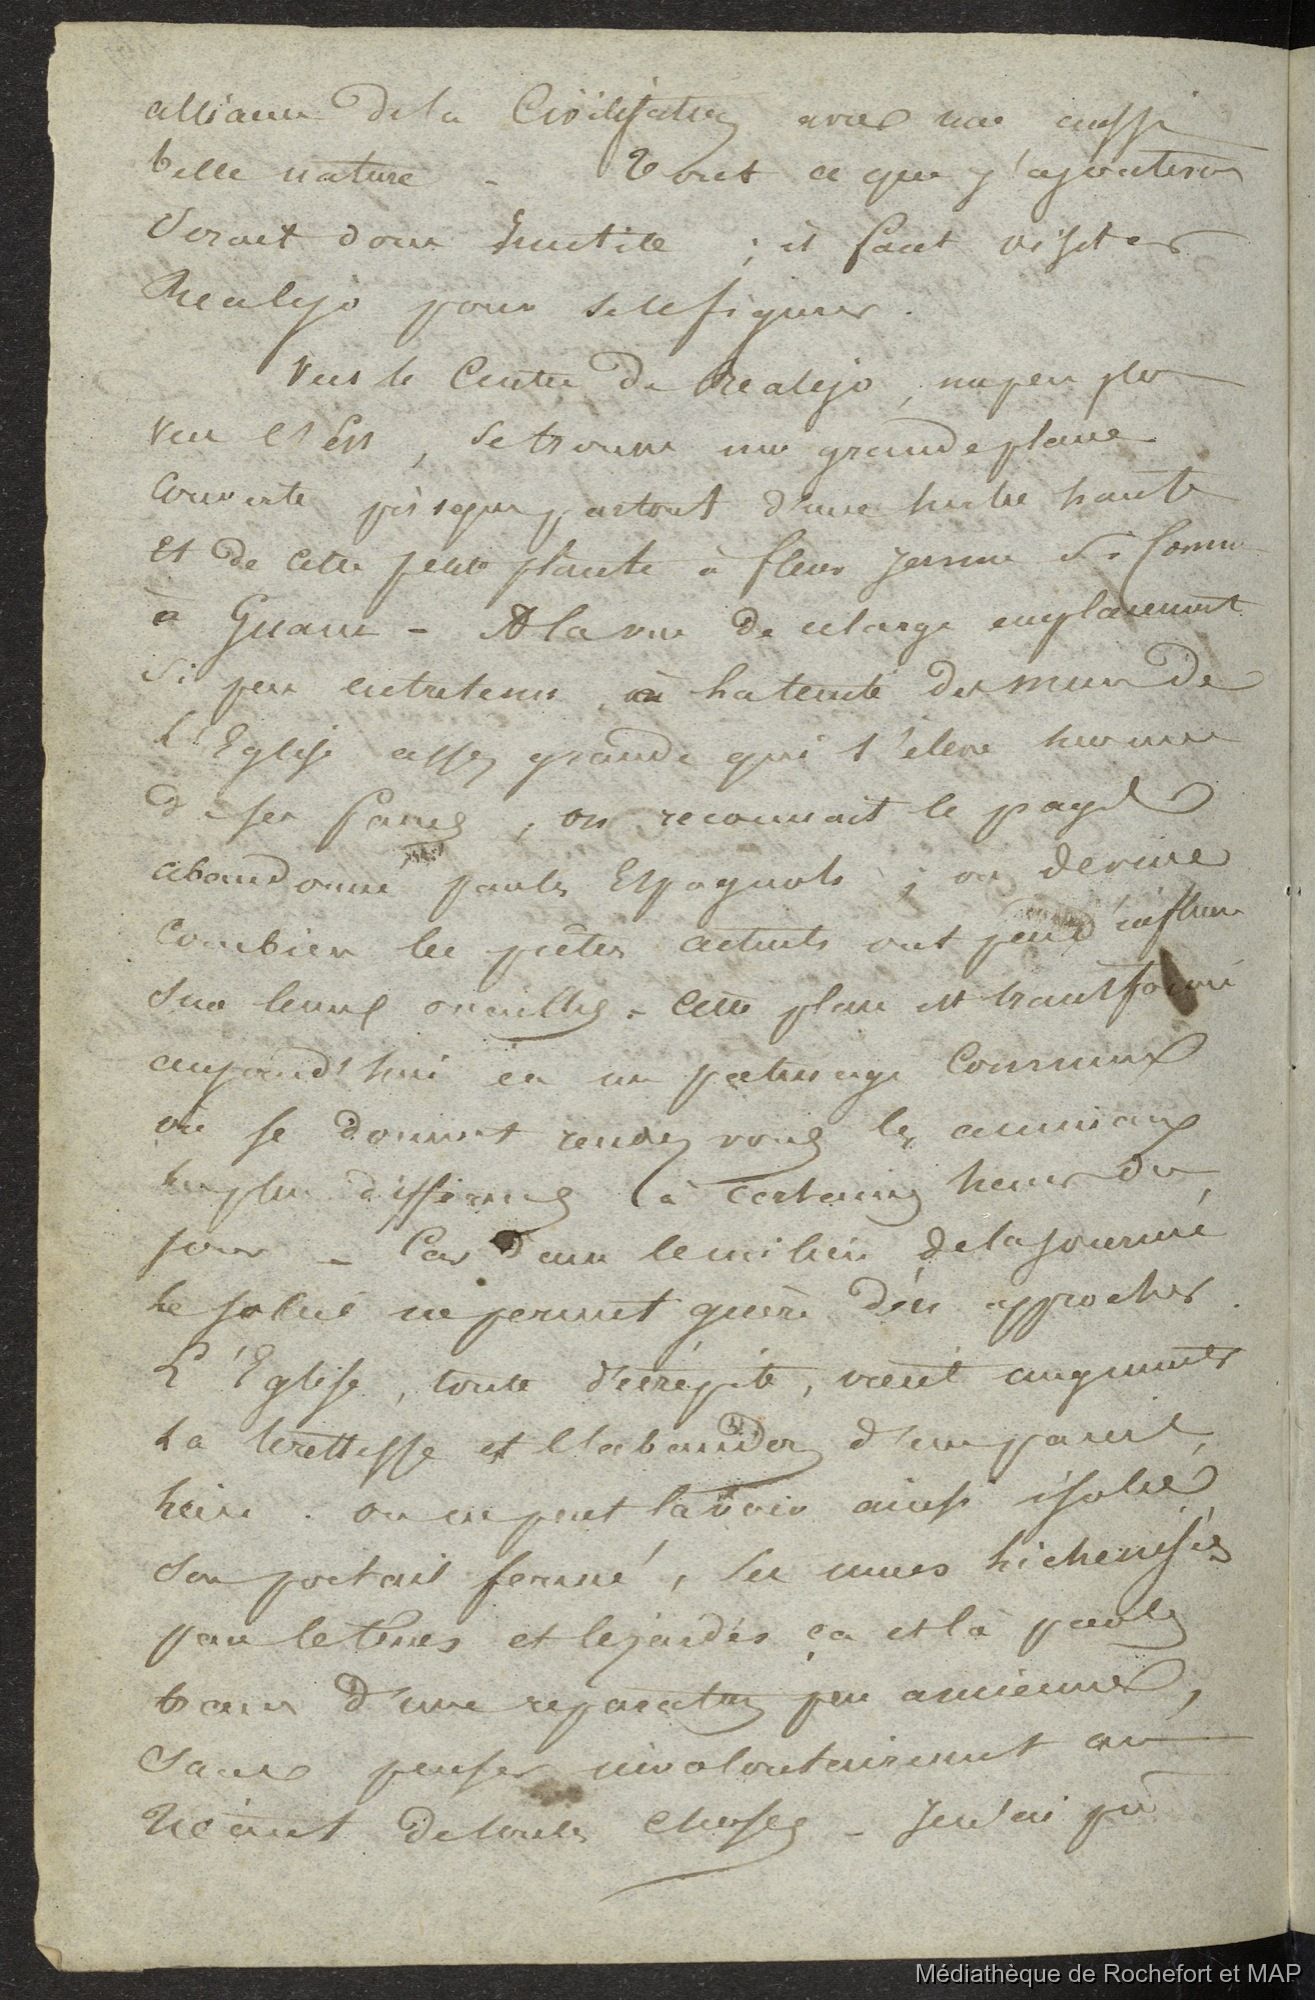 alliance de la Civilisation avec une aussi
belle nature - Tout ce que j'ajouterais
Serait donc Inutile ; il faut visiter
Realejo pour se le figurer.
Vers le Centre de Realejo, un peu plus
vers l'Est, se trouve une grande place
Couverte presque partout d'une herbe haute
Et de cette petite plante à fleur jaune si Connue
à Guam - A la vue de ce large emplacement
si peu entretenu, à la teinte des murs de
L'Eglise assez grande qui s'élève sur une
de ses faces ; on reconnait le pays
abandonné par les Espagnols ; on devine
Combien les prêtres actuels ont peu d'influence
Sur leurs ouailles. Cette place est transformée
aujourd'hui en un paturage Commun
où se donnent rendez vous les animaux
les plus différens à certaines heures du
jour - Car dans le milieu de la journée
le soleil ne permet guère d'en approcher.
L'Eglise, toute décrépite, vient augmenter
La tristesse et l'abandon d'un pareil
lieu. on ne peut la voir ainsi isolée,
Son portail fermé, ses murs lichenisés
par le tems et lézardés ça et là par les
traces d'une reparation peu ancienne,
Sans penser involontairement au
Néant de toutes choses - Je n'ai pu
Médiathèque de Rochefort et MAP